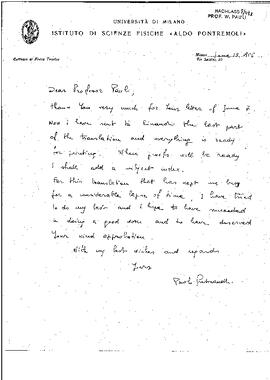 NACHLASS
PROF. W. PAULI
UNIVERSITÀ DI MILANO
ISTITUTO DI SCIENZE FISICHE «ALDO PONTREMOLI»
Milano, June 13, 195
Dear Professor Pauli,
thank you very much for your letter of June 7.
Now I have sent to the last part
of the translation and everything is ready
for printing. When proofs will be ready
I shall add a subject index.
For this translation that has kept me busy
for a considerable lapse of time, I have tried
to do my best and I hope to have succeeded
in doing a good one and to have deserved
Your kind approbation.
With my best wishes and regards
Yours
Paolo